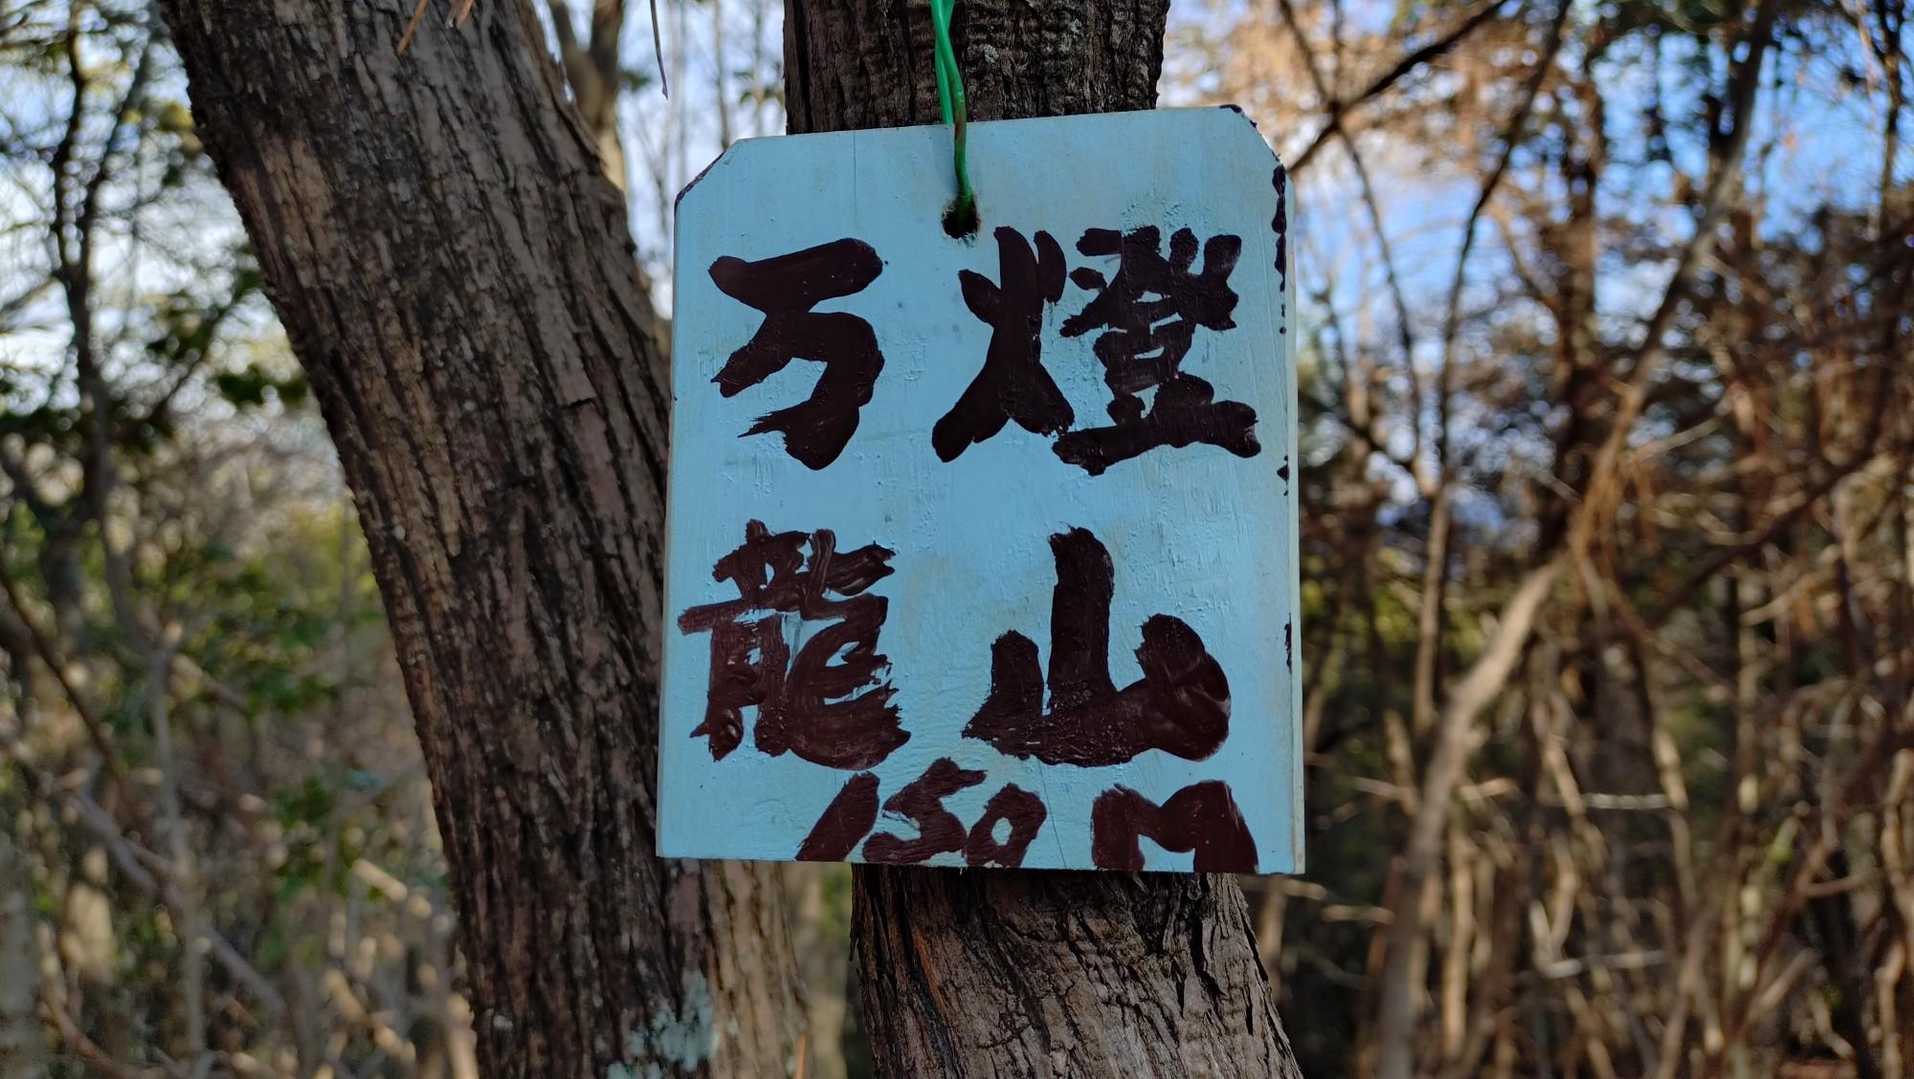 万燈
龍山
150M